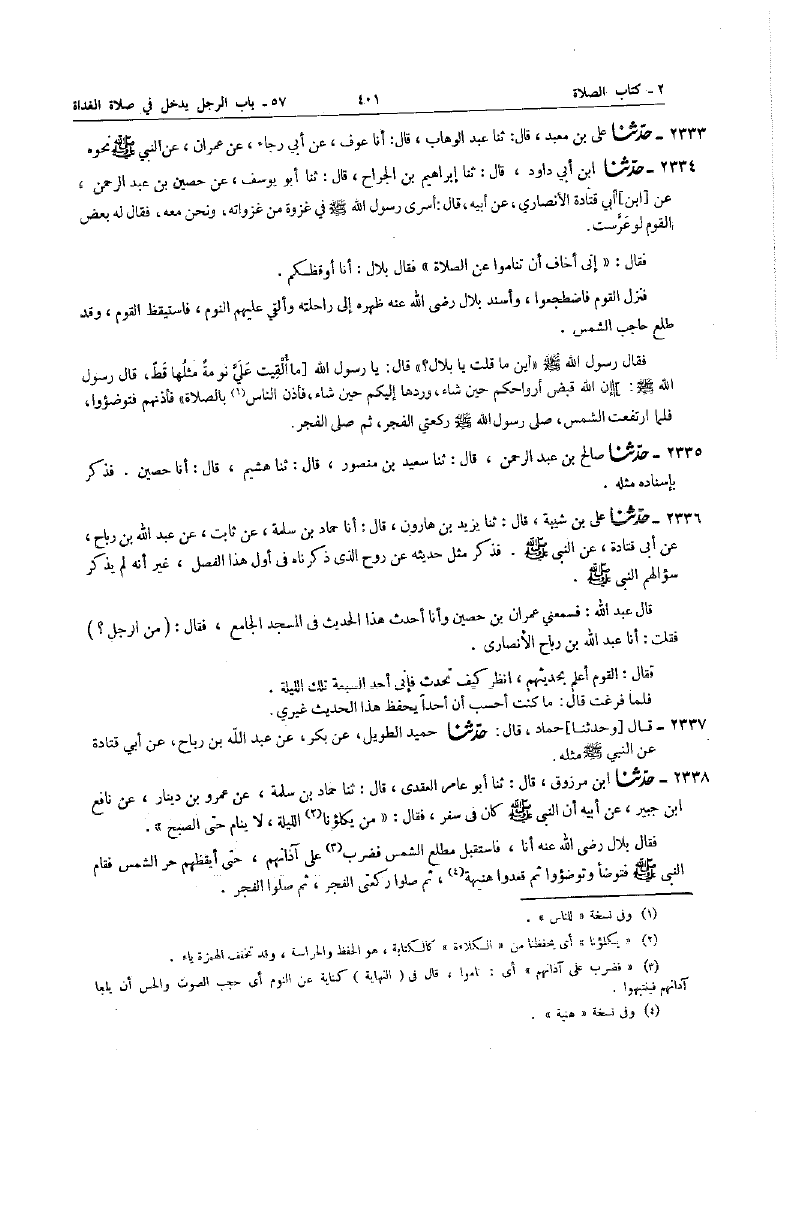 ٢ - كتاب الصلاة ٤٠١ ٥٧ - باب الرجل يدخل في صلاة الغداة
٢٣٣٣ - حدّثنا على بن معبد ، قال: ثنا عبد الوهاب ، قال: أنا عوف ، عن أبي رجاء ، عن عمران ، عن النبي ﷺ نحوه
٢٣٣٤ - حدّثنا ابن أبي داود ، قال : ثنا إبراهيم بن الجراح ، قال : ثنا أبو يوسف ، عن حصين بن عبد الرحمن ،
عن [ابن] أبي قتادة الأنصاري، عن أبيه، قال: أسرى رسول الله ﷺ في غزوة من غزواته، ونحن معه، فقال له بعض
القوم لو عَرَّست.
فقال : « إنى أخاف أن تناموا عن الصلاة » فقال بلال : أنا أوقظكم .
فنزل القوم فاضطجعوا ، وأسند بلال رضى الله عنه ظهره إلى راحلته وألقي عليهم النوم ، فاستيقظ القوم ، وقد
طلع حاجب الشمس .
فقال رسول الله ﷺ «أين ما قلت يا بلال؟» قال: يا رسول الله [ما أُلْقِيت عَلَيَّ نومةٌ مثلُها قَطّ، قال رسول
الله ﷺ : ]إن الله قبض أرواحكم حين شاء، وردها إليكم حين شاء، فأذن الناس(١) بالصلاة» فآذنهم فتوضؤوا،
فلما ارتفعت الشمس، صلى رسول الله ﷺ ركعتي الفجر، ثم صلى الفجر.
٢٣٣٥ - حدّثنا صالح بن عبد الرحمن ، قال : ثنا سعيد بن منصور ، قال : ثنا هشيم ، قال : أنا حصين . فذكر
بإسناده مثله .
٢٣٣٦ - حدّثنا على بن شيبة ، قال : ثنا يزيد بن هارون ، قال : أنا حماد بن سلمة ، عن ثابت ، عن عبد الله بن رباح ،
عن أبى قتادة ، عن النبى ﷺ . فذكر مثل حديثه عن روح الذى ذكرناه فى أول هذا الفصل ، غير أنه لم يذكر
سؤالهم النبى ﷺ .
قال عبد الله : فسمعني عمران بن حصين وأنا أحدث هذا الحديث فى المسجد الجامع ، فقال : ( من الرجل ؟ )
فقلت : أنا عبد الله بن رباح الأنصارى .
فقال : القوم أعلم بحديثهم ، انظر كيف تحدث فإنى أحد السبعة تلك الليلة .
فلما فرغت قال: ما كنت أحسب أن أحداً يحفظ هذا الحديث غيري.
٢٣٣٧ - قال [وحدثنا] حماد ، قال: حدّثنا حميد الطويل، عن بكر، عن عبد اللّه بن رباح، عن أبي قتادة
عن النبي ﷺ مثله.
٢٣٣٨ - حدّثنا ابن مرزوق ، قال : ثنا أبو عامر العقدى ، قال : ثنا حماد بن سلمة ، عن عمرو بن دينار ، عن نافع
ابن جبير ، عن أبيه أن النبى ﷺ كان فى سفر ، فقال : « من يكلؤنا(٢) الليلة ، لا ينام حتى الصبح » .
فقال بلال رضى الله عنه أنا ، فاستقبل مطلع الشمس فضرب(٣) على آذانهم ، حتى أيقظهم حر الشمس فقام
النبى ﷺ فتوضأ وتوضؤوا ثم قعدوا هنيهة(٤) ، ثم صلوا ركعتى الفجر ، ثم صلوا الفجر .
(١) وفى نسخة « للناس » .
(٢) « يكلؤنا » أى يحفظنا من « الكلاءة » كالكتابة ، هو الحفظ والحراسة ، وقد تخفف الهمزة ياء .
(٣) « فضرب على آذانهم » أى : ناموا ، قال فى ( النهاية ) كناية عن النوم أى حجب الصوت والحس أن يلجا
آذانهم فينتبهوا .
(٤) وفى نسخة « هنية » .